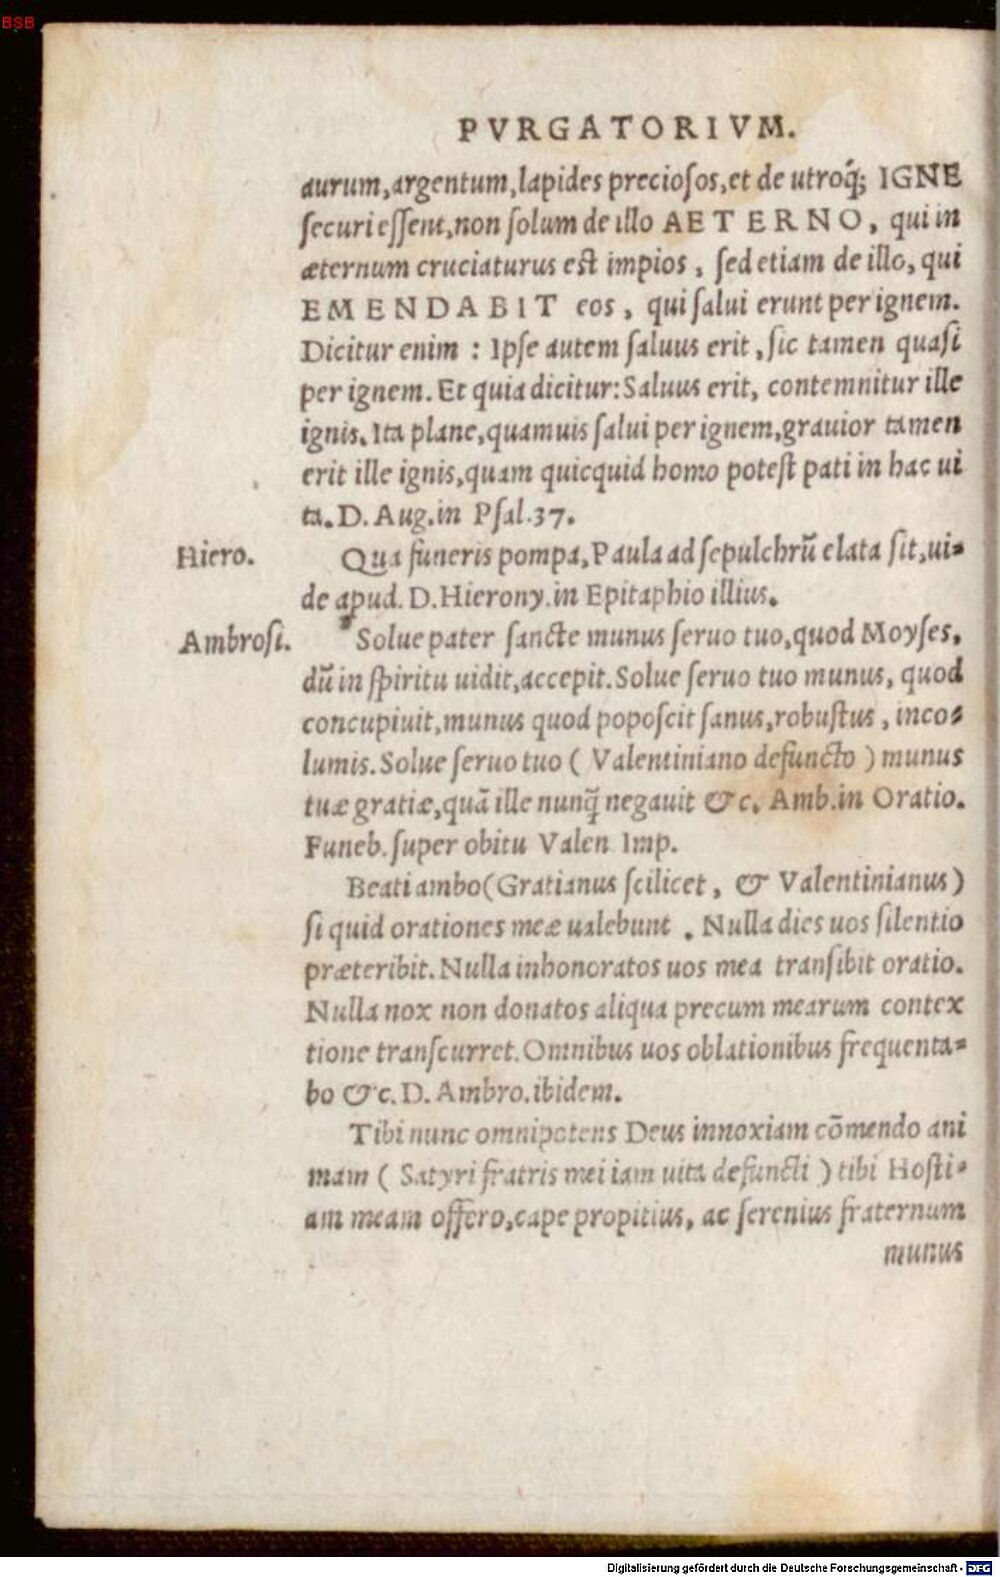 BSB
PVRGATORIVM.
aurum, argentum, lapides preciosos, et de utroq́; IGNE
securi essent, non solum de illo AETERNO, qui in
æternum cruciaturus est impios, sed etiam de illo, qui
EMENDABIT eos, qui salui erunt per ignem.
Dicitur enim : Ipse autem saluus erit, sic tamen quasi
per ignem. Et quia dicitur: Saluus erit, contemnitur ille
ignis. Ita plane, quamuis salui per ignem, grauior tamen
erit ille ignis, quam quicquid homo potest pati in hac ui
ta. D. Aug. in Psal. 37.
Hiero. Qua funeris pompa, Paula ad sepulchrũ elata sit, ui-
de apud. D. Hierony. in Epitaphio illius.
Ambrosi. Solue pater sancte munus seruo tuo, quod Moyses,
dũ in spiritu uidit, accepit. Solue seruo tuo munus, quod
concupiuit, munus quod poposcit sanus, robustus, inco-
lumis. Solue seruo tuo ( Valentiniano defuncto ) munus
tuæ gratiæ, quã ille nunq̃ negauit &c. Amb. in Oratio.
Funeb. super obitu Valen Imp.
Beati ambo (Gratianus scilicet, & Valentinianus)
si quid orationes meæ ualebunt . Nulla dies uos silentio
præteribit. Nulla inhonoratos uos mea transibit oratio.
Nulla nox non donatos aliqua precum mearum contex
tione transcurret. Omnibus uos oblationibus frequenta-
bo &c. D. Ambro. ibidem.
Tibi nunc omnipotens Deus innoxiam cõmendo ani
mam ( Satyri fratris mei iam uita defuncti ) tibi Hosti-
am meam offero, cape propitius, ac serenius fraternum
munus
Digitalisierung gefördert durch die Deutsche Forschungsgemeinschaft - DFG